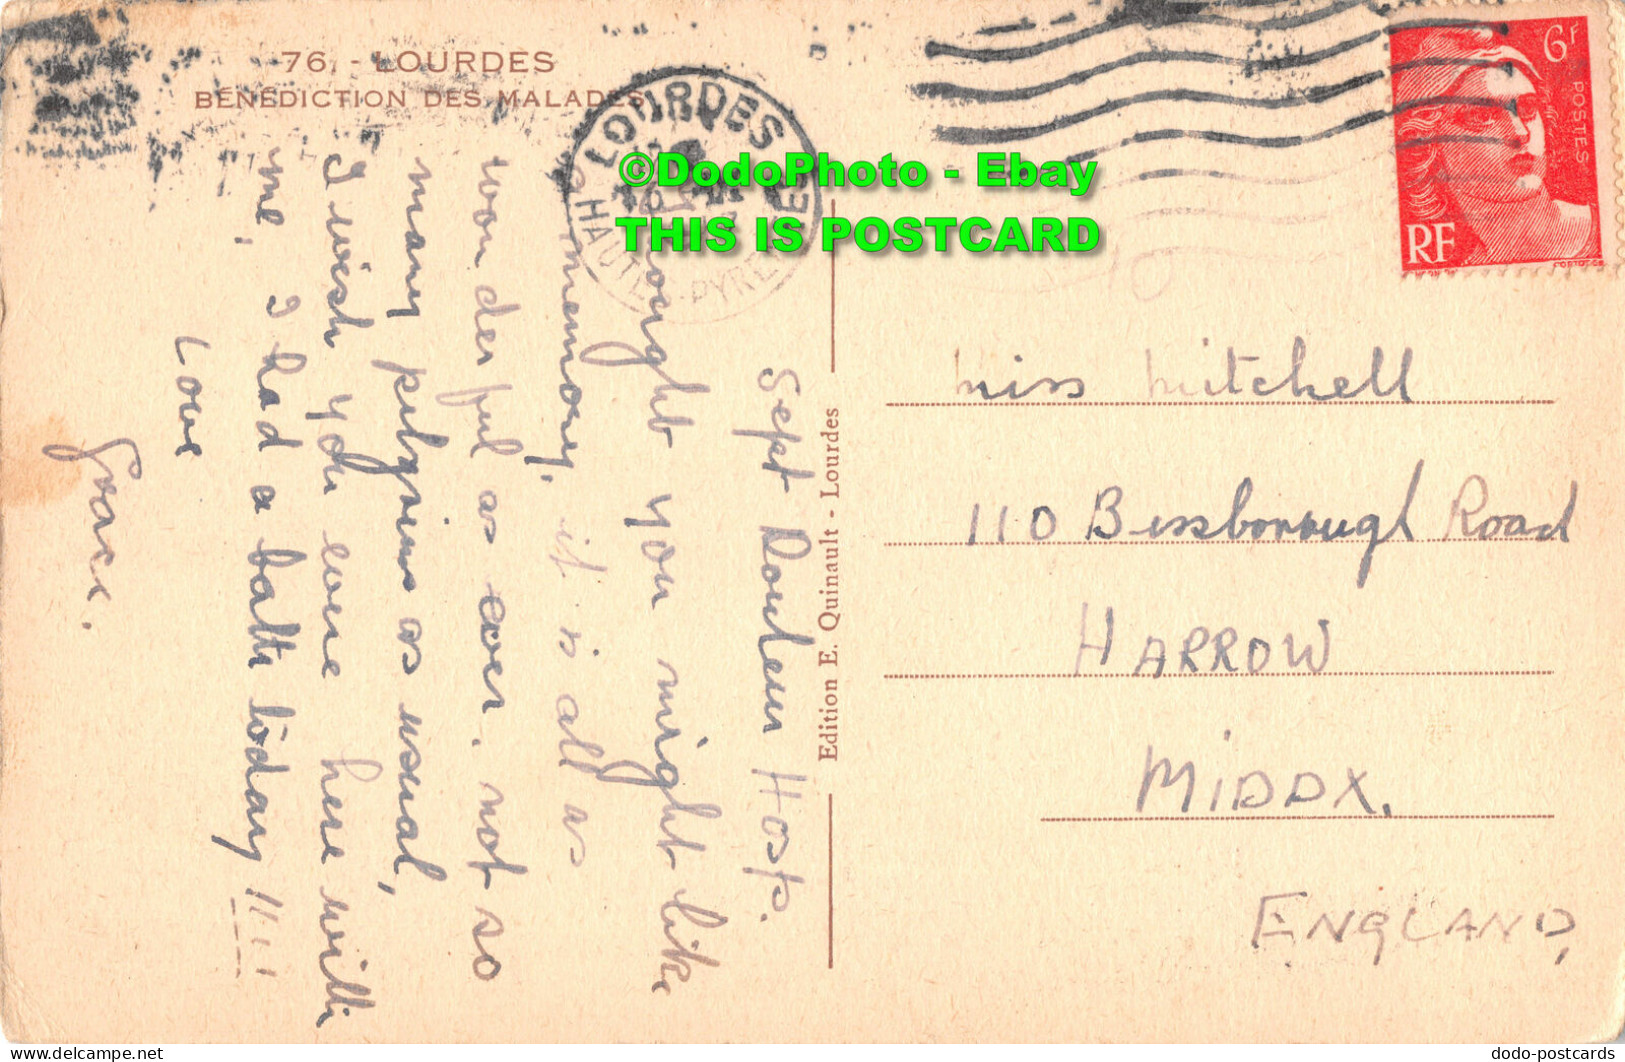 76. - LOURDES
BÉNÉDICTION DES MALADES
LOURDES
HAUTES-PYRENEES
©DodoPhoto - Ebay
THIS IS POSTCARD
6F
POSTES
RF
Hosp.
thought you might like
a memory, it is all as
wonderful as ever. not so
many pilgrims as usual,
I wish you were here with
me, I had a bath today !!!!
Love
Grace.
Edition E. Quinault - Lourdes
Miss Mitchell
110 Bessborough Road
HARROW
MIDDX.
ENGLAND,
www.delcampe.net
dodo-postcards